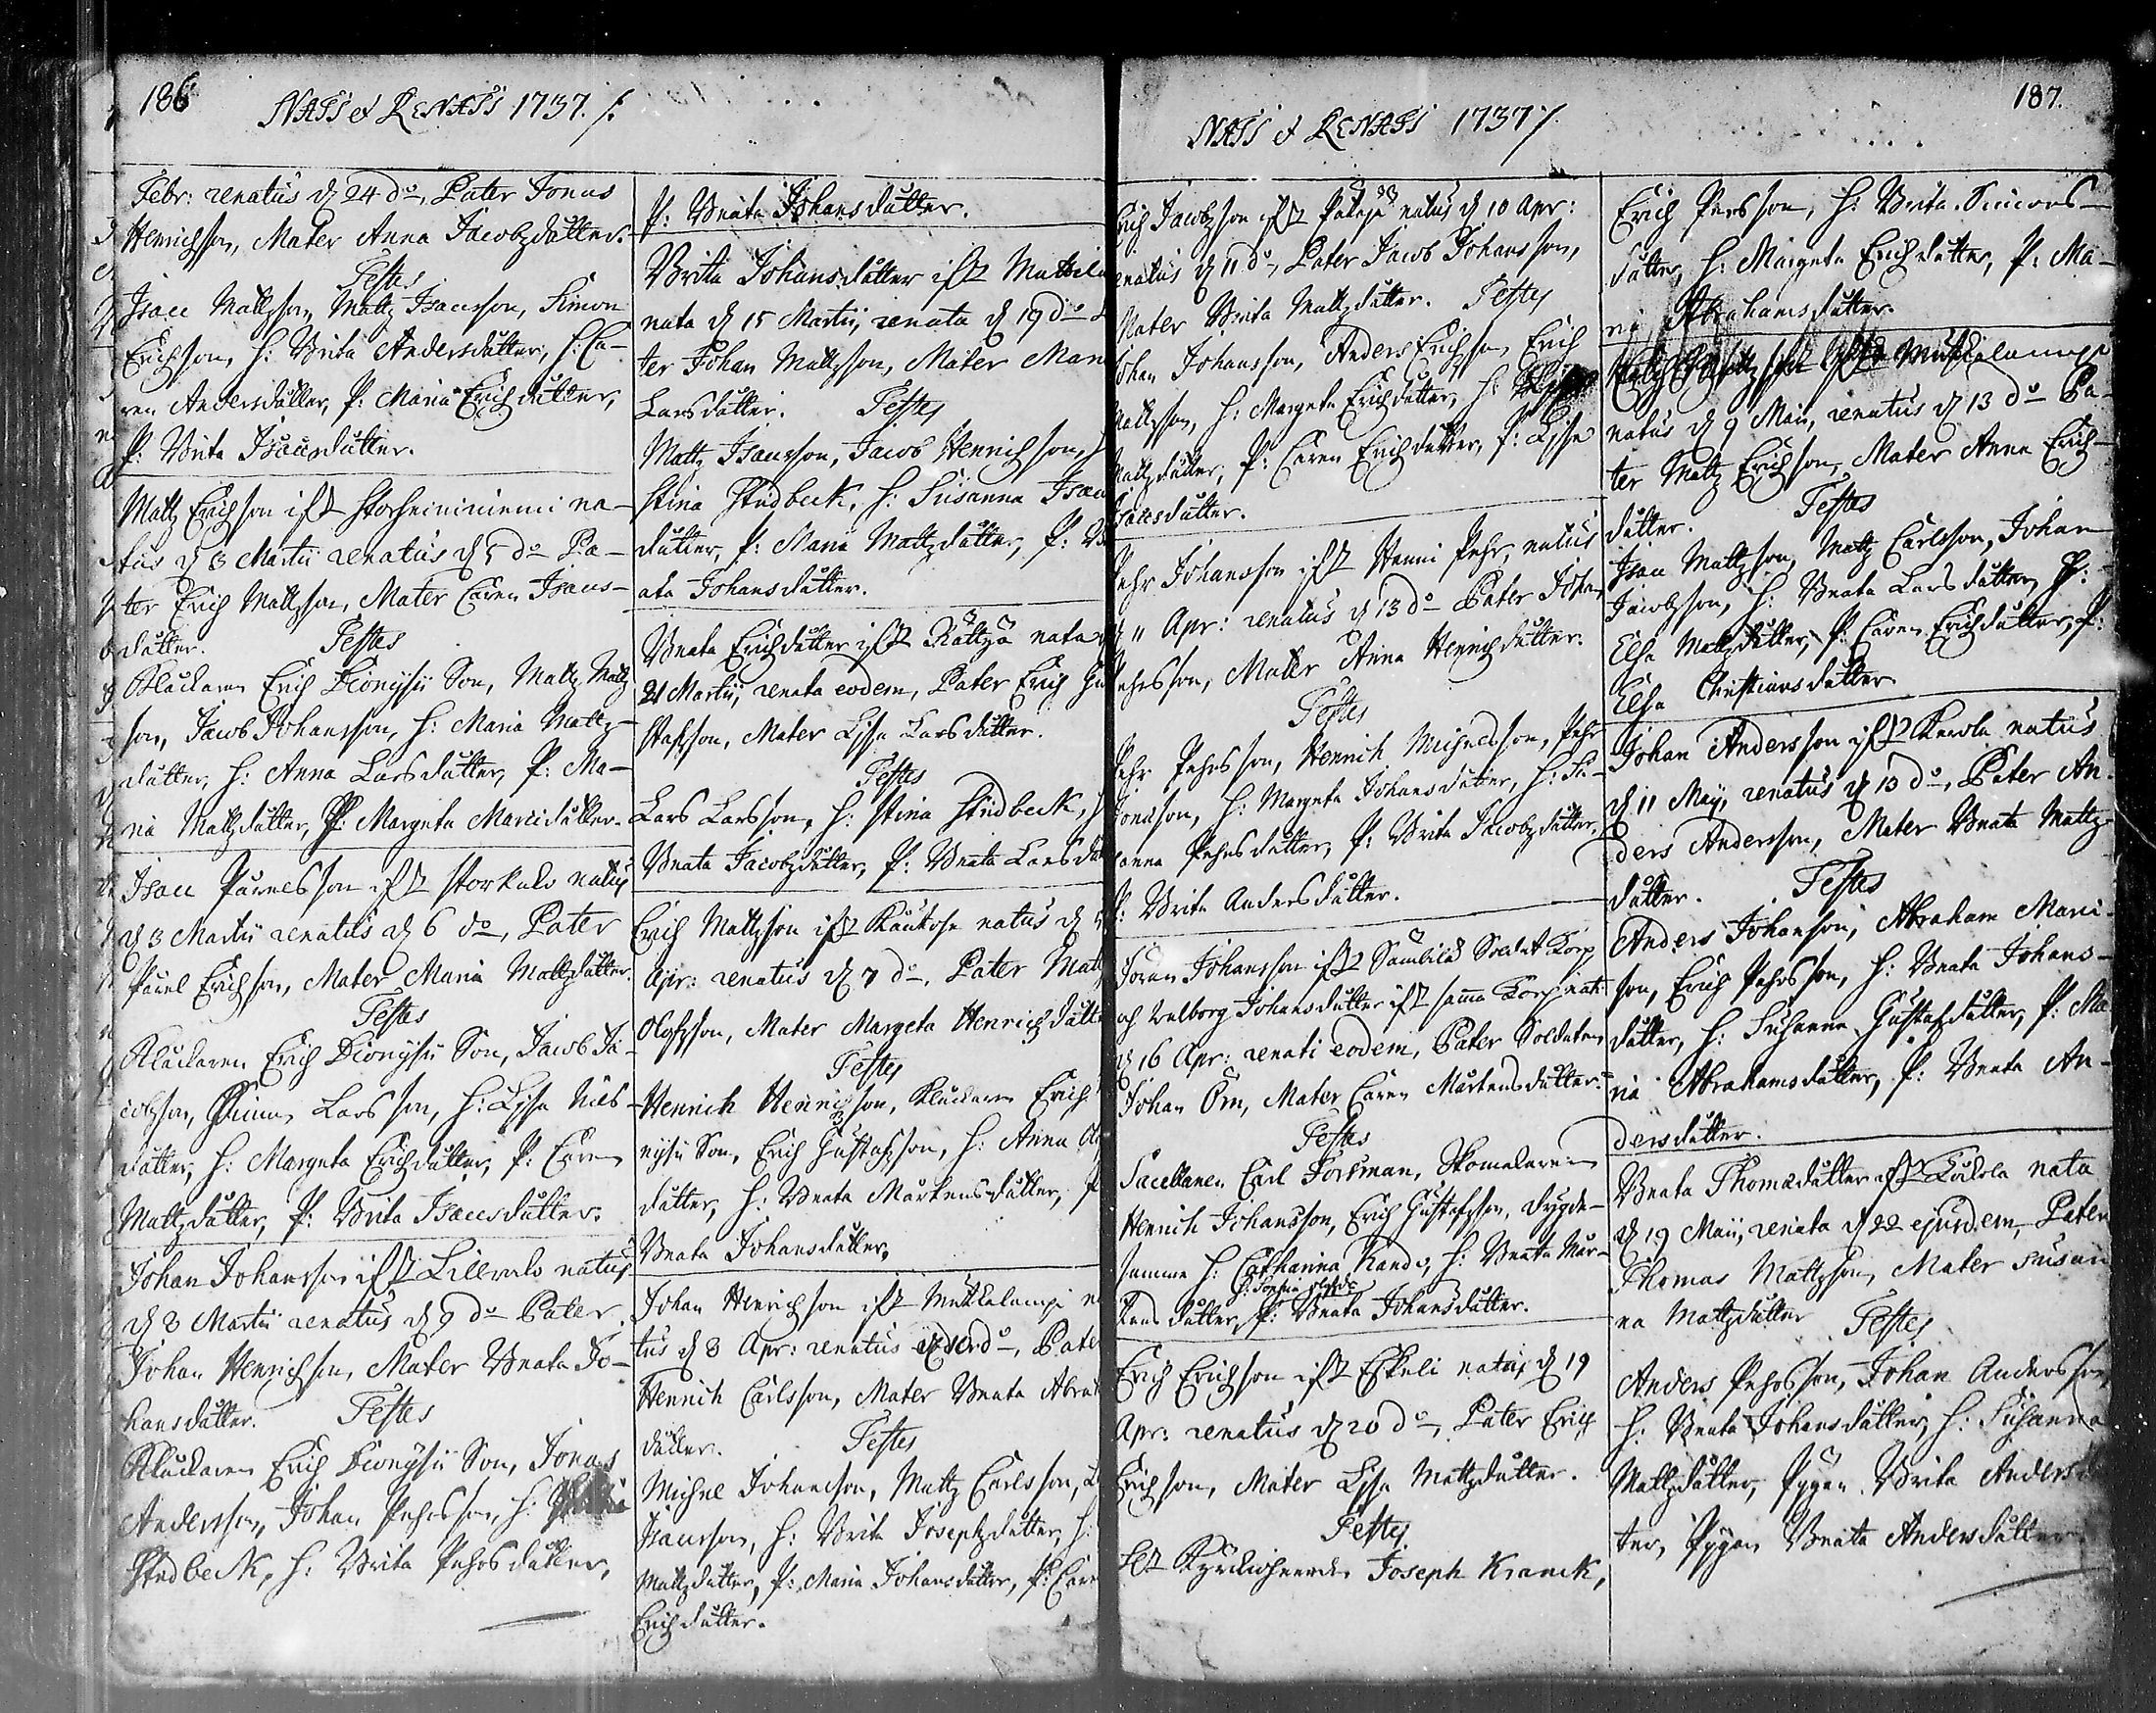 186
NATJ et RENATJ 1737. /.
Febr: renatus d 24 do, Pater Jonas
Henrichsson, Mater Anna Jacobzdåtter.
Testes
Isaac Mattsson, Mattz Isacsson, Simon
Erichsson, h: Brita Andersdåtter, h: Ca-
ren Andersdåtter, P: Maria Erichdåtter,
P: Brita Isacsdåtter.
Mattz Erichson ifr Storheiniemi na-
tus d 3 Martii renatus d 5 do Pa-
ter Erich Mattsson, Mater Caren Isacs-
dåtter. Testes
Kluckaren Erich Dionysii Son, Mattz Mattz
son, Jacob Johansson, h: Maria Mattz-
dåtter, h: Anna Larsdåtter, P: Ma-
ria Mattzdåtter, P: Margeta Marcidåtter.
Isaac Påvelsson ifr Storkulo natus
d 3 Martii renatus d 6 do, Pater
Påvel Erichson, Mater Maria Mattzdåtter.
Testes
Kluckaren Erich Dionysii Son, Jacob Ja-
cobsson, Larsson, h: Lisa Nils-
dåtter, h: Margeta Erichdåtter, P: Caren
Mattzdåtter, P: Brita Isacsdåtter.
Johan Johansson ifr Lillkulo natus
d 8 Martii renatus d 9 do Pater
Johan Henrichson, Mater Beata Jo-
hansdåtter. Testes
Kluckaren Erich Dionysii Son, Jonas
Andersson, Johan Pehrsson, h:
Studbeck, h: Brita Pehrsdåtter,
P: Beata Johansdåtter.
Brita Johansdåtter ifr Mattila
nata d 15 Martii, renata d 19 do
ter Johan Mattsson, Mater Mari
Larsdåtter. Testes
Mattz Isacsson, Jacob Henrichson,
Stina Studbeck, h: Susanna Isacs
dåtter, P: Maria Mattzdåtter, P: Be
ata Johansdåtter.
Beata Erichdåtter ifr Rättzå nata
21 Martii, renata eodem, Pater Erich Gu
stafsson, Mater Lisa Larsdåtter.
Testes
Lars Larsson, h: Stina Studbeck,
Beata Jacobzdåtter, P: Beata Larsdåt
Erich Mattsson ifr Kaukose natus d
Apr: renatus d 7 do, Pater Mattz
Olofsson, Mater Margeta Henrichdåtte
Testes
Henrich Henrichson, Kluckaren Erich
nysii Son, Erich Gustafsson, h: Anna
dåtter, h: Beata Mårtensdåtter, P
Beata Johansdåtter.
Johan Henrichson ifr Mutkalampi na
tus d 8 Apr: renatus do, Pater
Henrich Carlsson, Mater Beata Abrah
dåtter. Testes
Michel Johansson, Mattz Carlsson,
Isacsson, h: Brita Josephzdåtter, h:
Mattzdåtter, P: Maria Johansdåtter, P: Caren
Erichdåtter.
187.
NATJ et RENATJ 1737 /.
Erich Jacobsson ifr natus d 10 Apr:
renatus d 11 do, Pater Jacob Johansson,
Mater Brita Mattzdåtter. Testes
Johan Johansson, Anders Erichson, Erich
Mattsson, h: Margeta Erichdåtter, h:
Mattzdåtter, P: Caren Erichdåtter, P: Lisa
Isacsdåtter.
Pehr Johansson ifr Pehr, natus
d 11 Apr: renatus d 13 do Pater Johan
Pehrsson, Mater Anna Henrichdåtter.
Testes
Pehr Pehrsson, Henrich Michelsson, Pehr
Jonsson, h: Margeta Johansdåtter, h: Su-
sanna Pehrsdåtter, P: Brita Jacobzdåtter,
P: Brita Andersdåtter.
Göran Johansson ifr Såmbila Soldat Torp
och Valborg Johansdåtter ifr samma Torp nati
d 16 Apr: renati eodem, Pater Soldaten
Johan Örn, Mater Caren Mårtensdåtter.
Testes
Sacellanen Carl Forsman, Skomakaren
Henrich Johansson, Erich Gustafsson, Dygde-
samma h: Catharina Rando, h: Beata Mår-
tensdåtter, P: Beata Johansdåtter.
Erich Erichson ifr Eskeli natus d 19
Apr: renatus d 20 do, Pater Erich
Erichson, Mater Lisa Mattzdåtter.
Testes
Joseph Kranck,
Erich Persson, h: Brita Simons-
dåtter, h: Margeta Erichdåtter, P: Ma-
ria Abrahamsdåtter.
Mutkalampi
natus d 9 Maii, renatus d 13 do Pa-
ter Mattz Erichson, Mater Anna Erich-
dåtter. Testes
Isac Mattsson, Mattz Carlsson, Johan
Jacobsson, h: Beata Larsdåtter, P:
Elsa Mattzdåtter, P: Caren Erichdåtter, P:
Elsa Christiansdåtter
Johan Andersson ifr Karola natus
d 11 Maij, renatus d 13 do, Pater An-
ders Andersson, Mater Beata Mattz-
dåtter. Testes
Anders Johanson, Abraham Marci-
son, Erich Pehrsson, h: Beata Johans-
dåtter, h: Susanna Gustafdåtter, P: Ma
ria Abrahamsdåtter, P: Beata An-
dersdåtter.
Beata Thomædåtter ifr nata
d 19 Maii, renata d 22 ejusdem, Pater
Thomas Mattsson, Mater Susan
na Mattzdåtter Testes
Anders Pehrsson, Johan Andersson,
h: Beata Johansdåtter, h: Susanna
Mattzdåtter, Pygan Brita Andersdåt
ter, Pygan Beata Andersdåtter